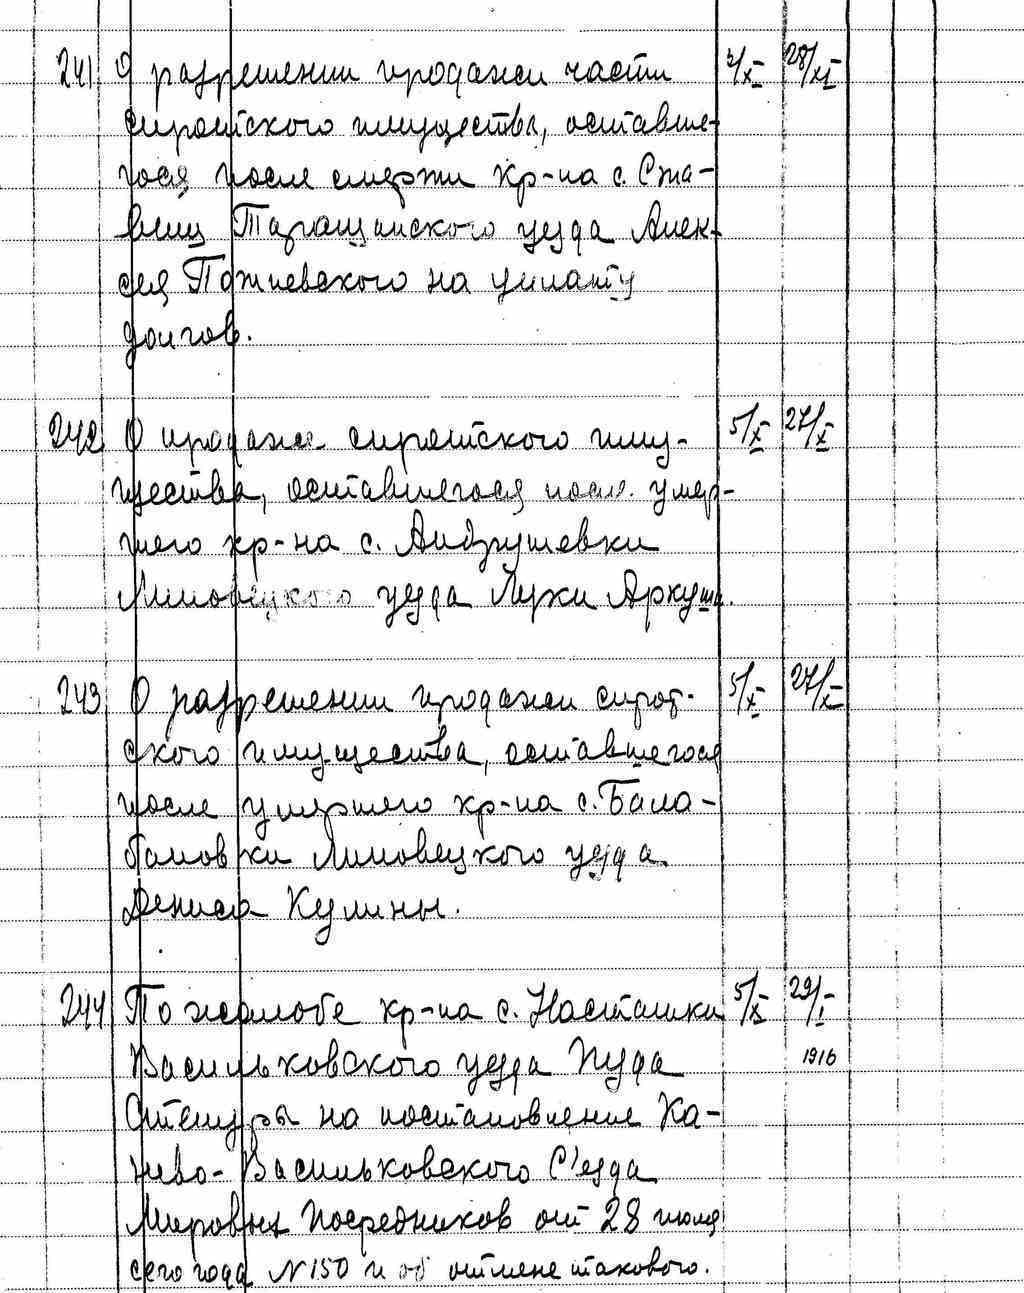 241 О разрешении продажи части 2/XI 28/XI
сиротского имущества, оставше-
гося после смерти кр-на с. Ста-
вищ Таращанского уезда Алек-
сея Пожиевского на уплату
долгов.
242 О продаже сиротского иму- 5/X 27/X
щества, оставшегося посл. умер-
шего кр-на с. Андрушевки
Липовецкого уезда Луки Аркуша.
243 О разрешении продажи сирот- 5/X 27/X
ского имущества, оставшегося
после умершего кр-на с. Бала-
бановки Липовецкого уезда
Дениса Кулины.
244 По жалобе кр-на с. Насташки 5/X 29/I
Васильковского уезда 1916
на постановление Ка-
нево-Васильковского С'езда
Мировых Посредников от 28 июля
сего года N 150 и об отмене такового.